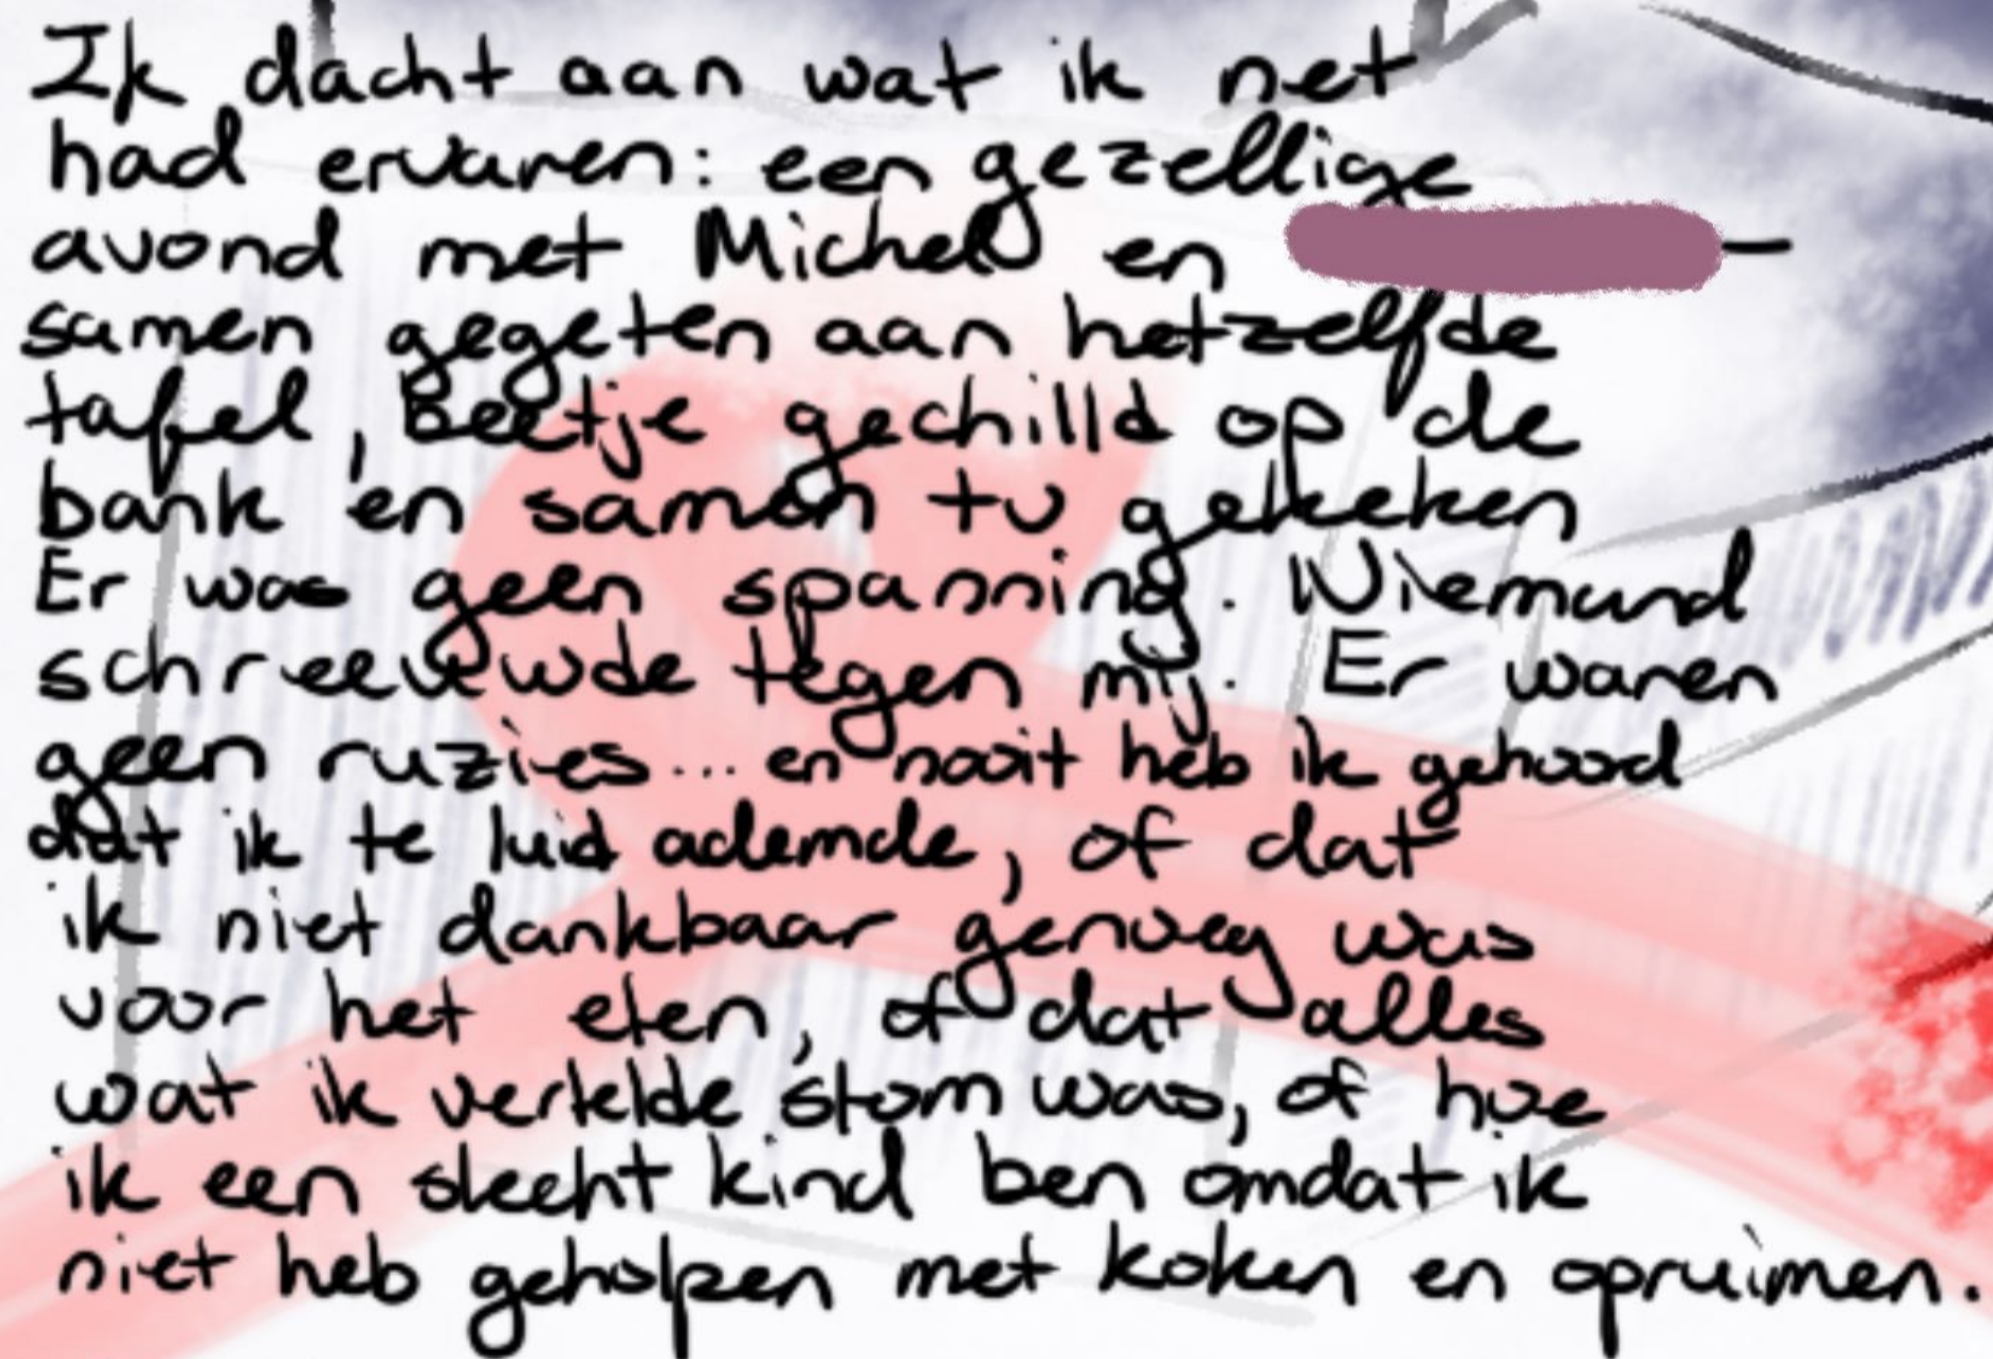 Ik dacht aan wat ik net
had ervaren: een gezellige
avond met Michel en —
samen gegeten aan hetzelfde
tafel, beetje gechilld op de
bank en samen tv gekeken
Er was geen spanning. Niemand
schreeuwde tegen mij. Er waren
geen ruzies... en nooit heb ik gehoord
dat ik te luid ademde, of dat
ik niet dankbaar genoeg was
voor het eten, of dat alles
wat ik vertelde stom was, of hoe
ik een slecht kind ben omdat ik
niet heb geholpen met koken en opruimen.